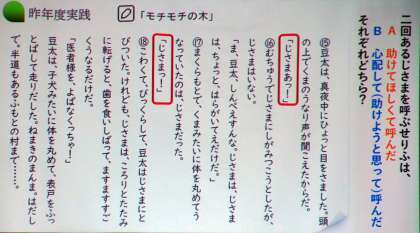 昨年度実践
「モチモチの木」
二回あるじさまを呼ぶせりふは、
A 助けてほしくて呼んだ
B 心配して(助けようと思って)呼んだ
それぞれどちら?
⑮豆太は、真夜中にひょっと目をさました。頭
の上でくまのうなり声が聞こえたからだ。
「じさまぁっ!」
⑯むちゅうでじさまにしがみつこうとしたが、
じさまはいない。
「ま、豆太、しんぺえすんな、じさまは、じさま
は、ちょっと、はらがいてえだけだ。」
⑰まくらもとで、くまみたいに体を丸めてうなっていたのは、じさまだった。
「じさまっ!」
⑱こわくて、びっくらして、豆太はじさまにと
びついた。けれども、じさまは、ころりとたたみ
に転げると、歯を食いしばって、ますますすご
くうなるだけだ。
「医者様を、よばなくっちゃ!」
豆太は、子犬みたいに体を丸めて、表戸をふっ
とばして走りだした。ねまきのまんま。はだし
で。半道もあるふもとの村まで……。